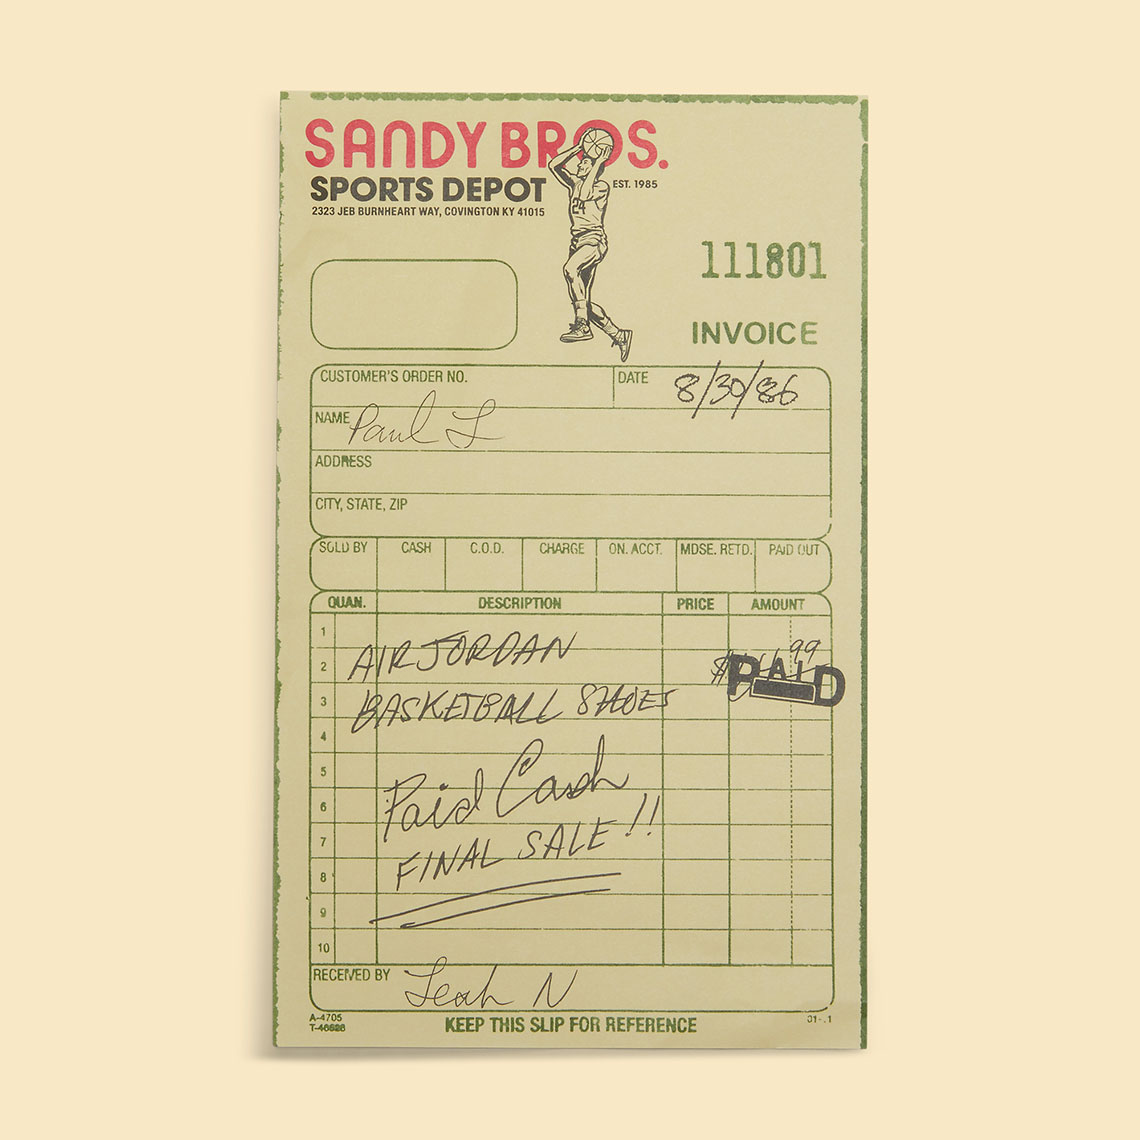 SANDY BROS.
SPORTS DEPOT
EST. 1985
2323 JEB BURNHEART WAY, COVINGTON KY 41015
24
111801
INVOICE
CUSTOMER'S ORDER NO. DATE 8/30/86
NAME Paul L
ADDRESS
CITY, STATE, ZIP
SOLD BY CASH C.O.D. CHARGE ON. ACCT. MDSE. RETD. PAID OUT
QUAN. DESCRIPTION PRICE AMOUNT
1
2 AIR JORDAN $ 99
PAID
3 BASKETBALL SHOES
4
5
6 Paid Cash
7 FINAL SALE!!
8
9
10
RECEIVED BY Leah N
A-4705
T-46628
KEEP THIS SLIP FOR REFERENCE